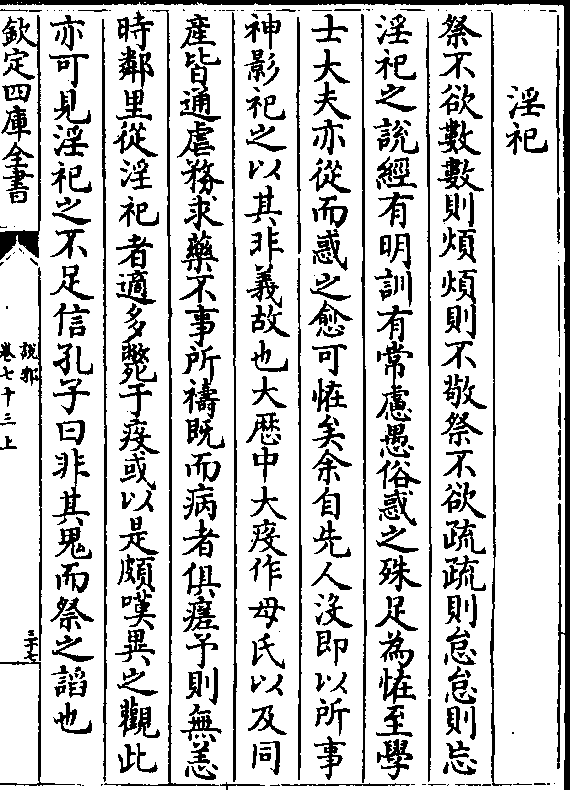 淫祀
祭不欲數數則煩煩則不敬祭不欲疏疏則怠怠則忘
淫祀之說經有明訓有常慮愚俗惑之殊足為恠至學
士大夫亦從而惑之愈可恠矣余自先人沒即以所事
神影祀之以其非義故也大歴中大疫作母氏以及同
產皆通虐務求藥不事所禱既而病者俱瘥予則無恙
時鄰里從淫祀者適多斃于疫或以是頗嘆異之觀此
亦可見淫祀之不足信孔子曰非其鬼而祭之謟也
欽定四庫全書
說郛
卷七十三上
三十七